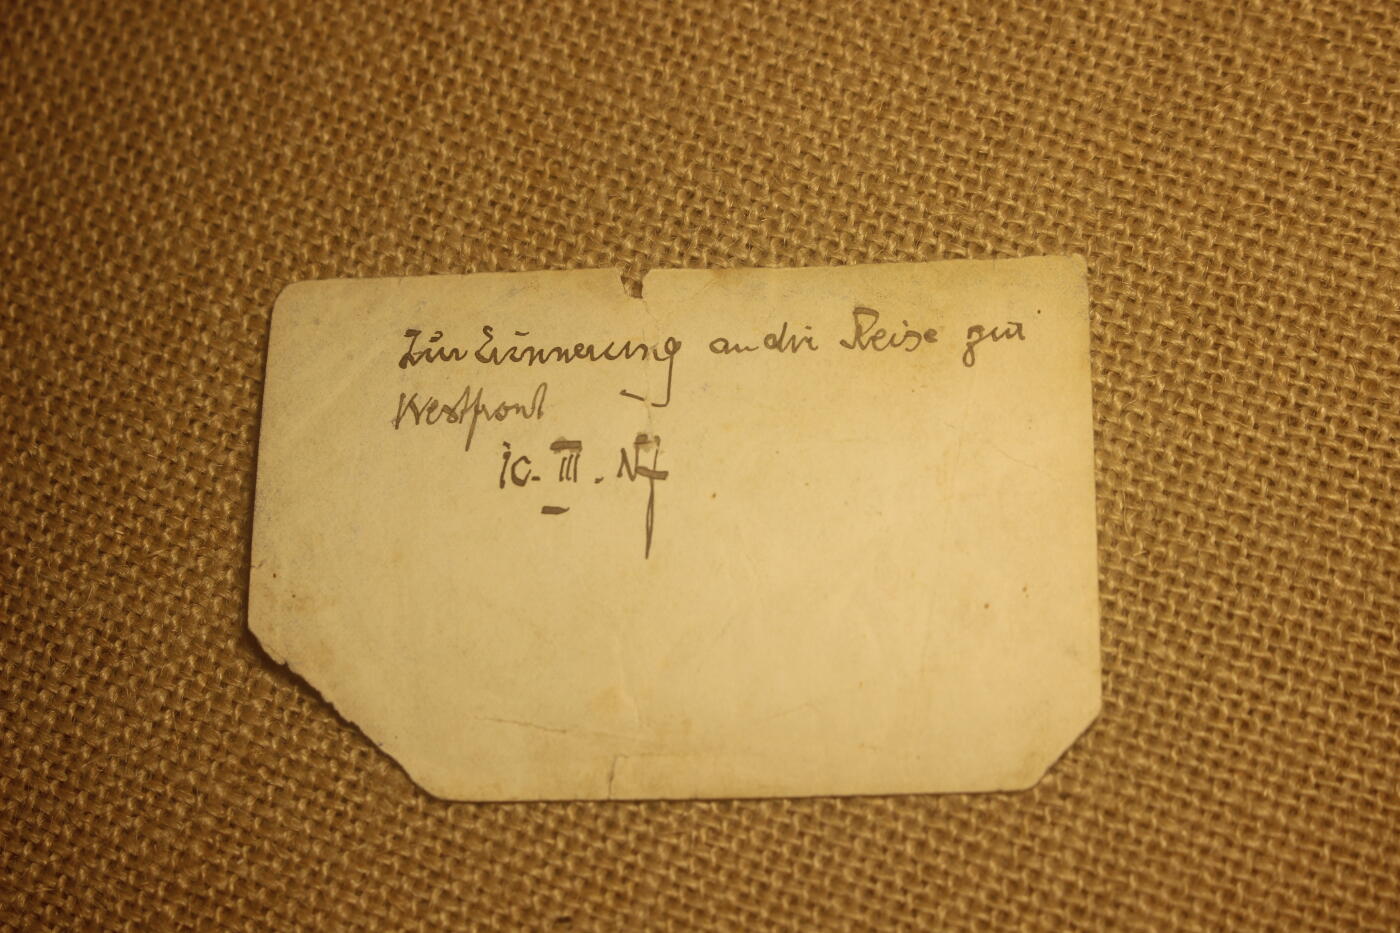 Zur Erinnerung an die Reise zur
Westfront
III.